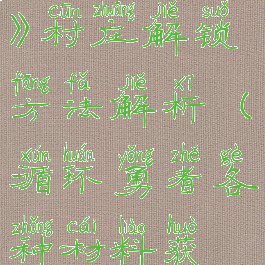 cūn zhuāng jiě suǒ
》村庄解锁
fāng fǎ jiě xī
方法解析（
xún huán yǒng zhě gè
循环勇者各
zhǒng cái liào huò
种材料获